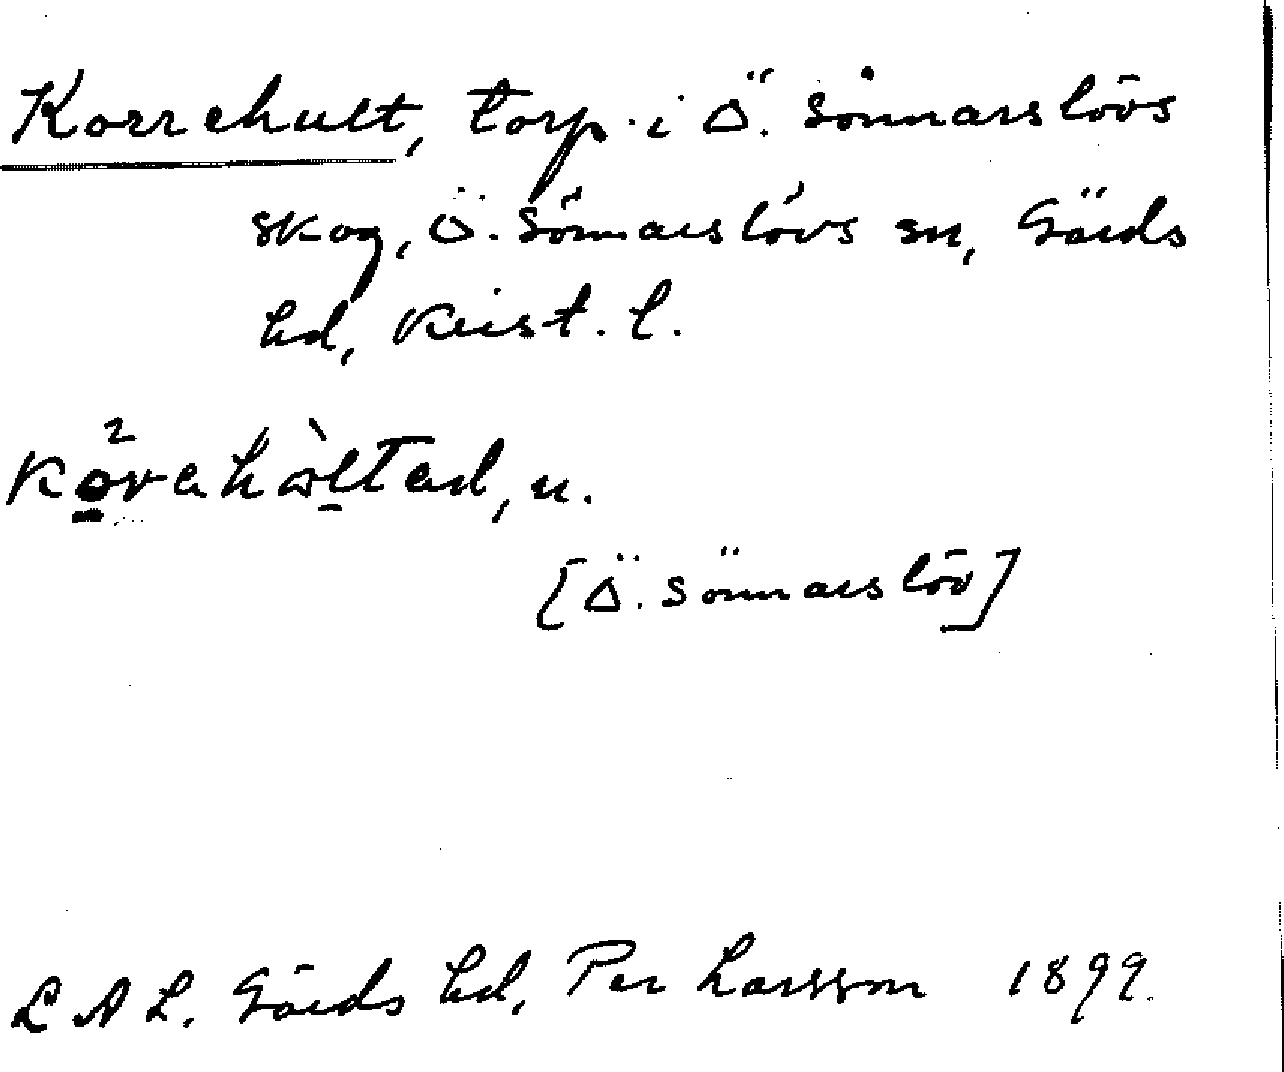 Korrehult, torp i Ö. Sönnarslövs
skog, Ö. Sönnarslövs sn, Gärds
hd, Krist. l.
[Ö. Sönnarslöv]
L A L. Gärds hd, Per Larsson 1899.